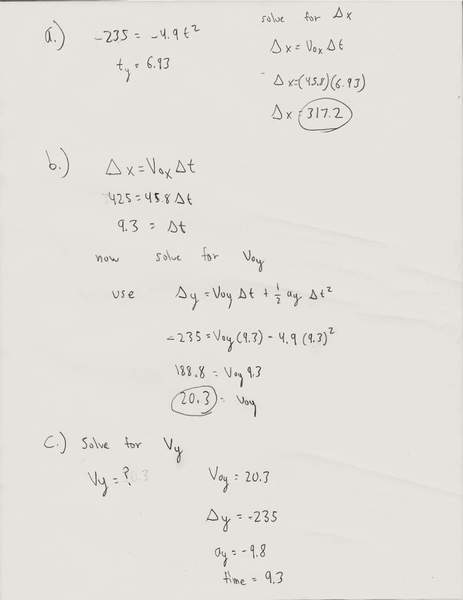 a.) -235 = -4.9 t²
t_y = 6.93
solve for Δx
Δx = V₀ₓ Δt
Δx=(45.8)(6.93)
Δx = 317.2
b.) Δx = V₀ₓ Δt
425 = 45.8 Δt
9.3 = Δt
now solve for V₀y
use Δy = V₀y Δt + ½ ay Δt²
-235 = V₀y (9.3) - 4.9 (9.3)²
188.8 = V₀y 9.3
20.3 = V₀y
C.) Solve for Vy
Vy = ?
V₀y = 20.3
Δy = -235
ay = -9.8
time = 9.3